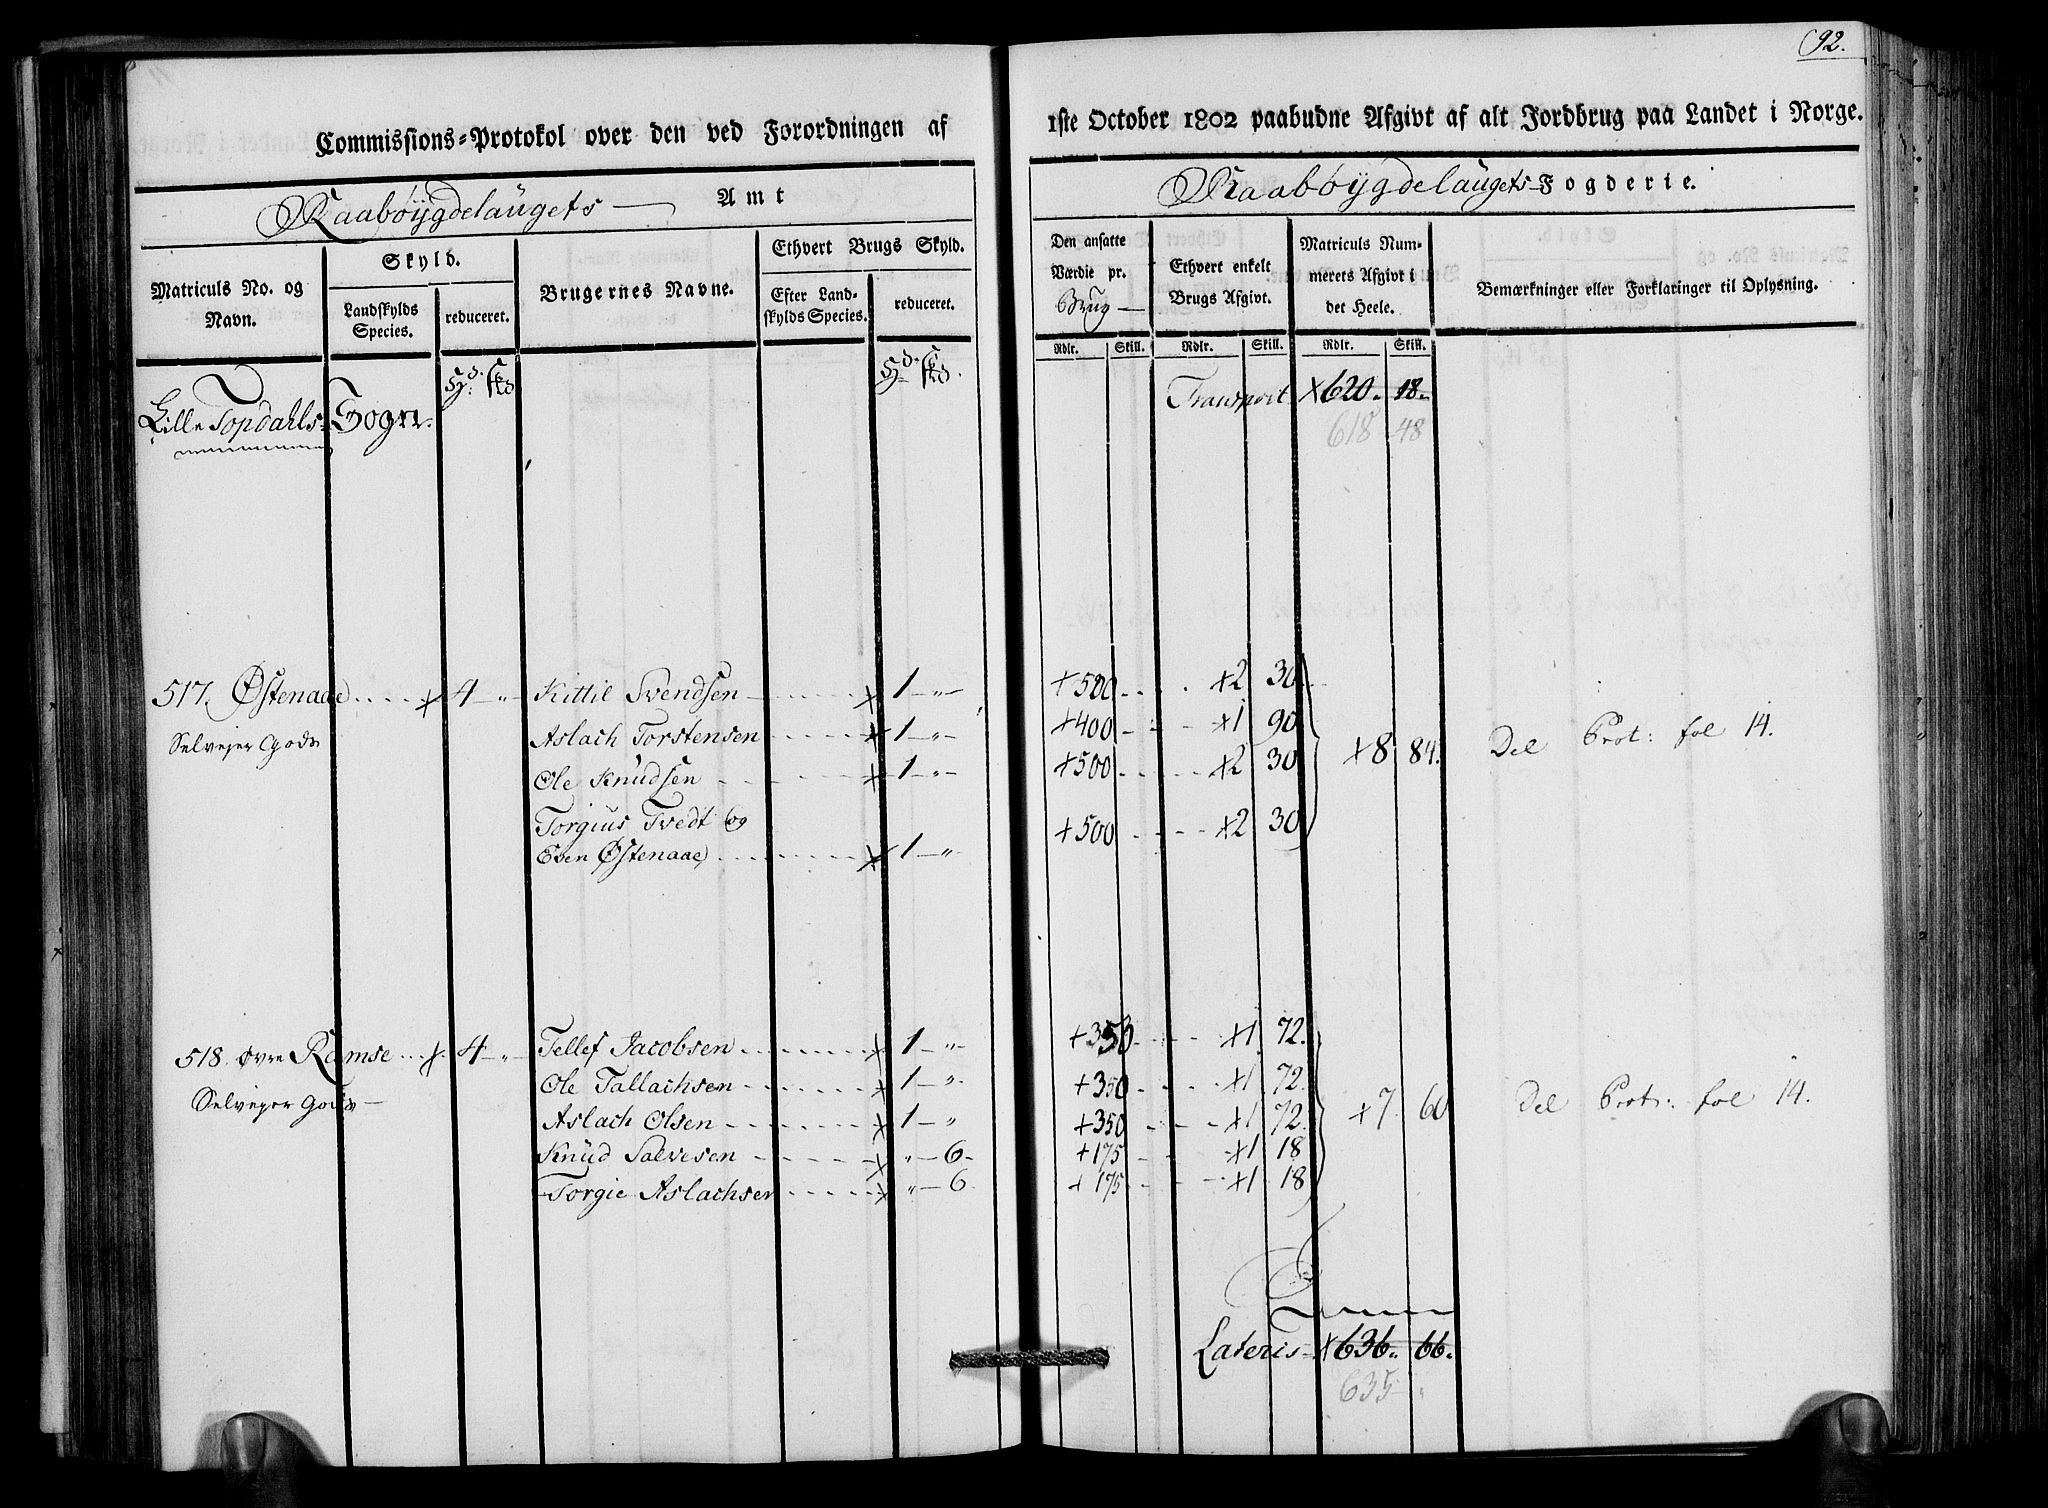 92.
Commissions=Protokol over den ved Forordningen af 1ste October 1802 paabudne Afgivt af alt Jordbrug paa Landet i Norge.
Raabøygdelaugets Amt
Raabøygdelaugets Fogderie.
Matriculs No. og Navn.
Skyld.
Landskylds Species.
reduceret.
Brugernes Navne.
Ethvert Brugs Skyld.
Efter Landskylds Species.
reduceret.
Den ansatte Værdie pr. Brug
Ethvert enkelt Brugs Afgivt.
Matriculs Nummerets Afgivt i det Heele.
Bemærkninger eller Forklaringer til Oplysning.
Rdlr. Skill. Rdlr. Skill. Rdlr. Skill.
Lille Topdahls Sogn.
Transport x620. 18.
618 48
517. Østenaae .... x 4 - " Kittil Svendsen ........ x 1 - " - +500 .... x2 30
Selvejer Gods
Aslach Torstensen ..... x 1 - " - +400 - - - x1 90
Ole Knudsen - ....... x 1 - " - +500 ..... x2 30 x8 84. Del Prot: fol 14.
Torgius Tvedt og
Even Østenaae ........ x 1 - " +500 ..... x2 30
518. øvre Ramse ... x. 4 - " - Tellef Jacobsen ........ x 1 - " - +350 ..... x1 72.
Selvejer Gods -
Ole Tallachsen ........ x 1 - " +350 ..... x1 72.
Aslach Olsen ........ x 1 - " +350 ..... x1 72. x7. 60 Del Prot: fol 14.
Knud Salvesen ........ x " - 6 - +175 - - - x1 18
Torgie Aslachsen ..... x " - 6 +175 ..... x1 18
Lateris x636. 66.
635 "